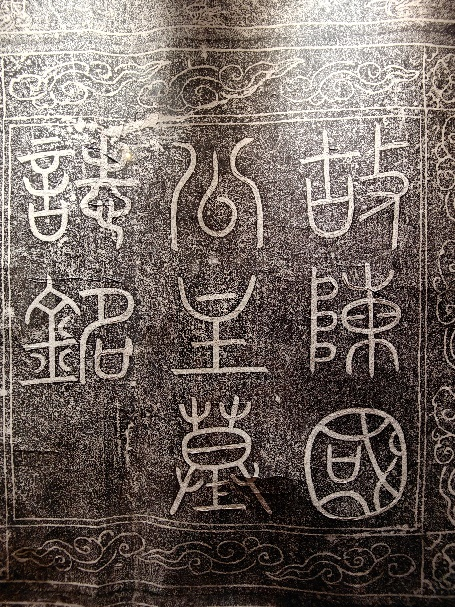 故陳國
公主墓
誌銘